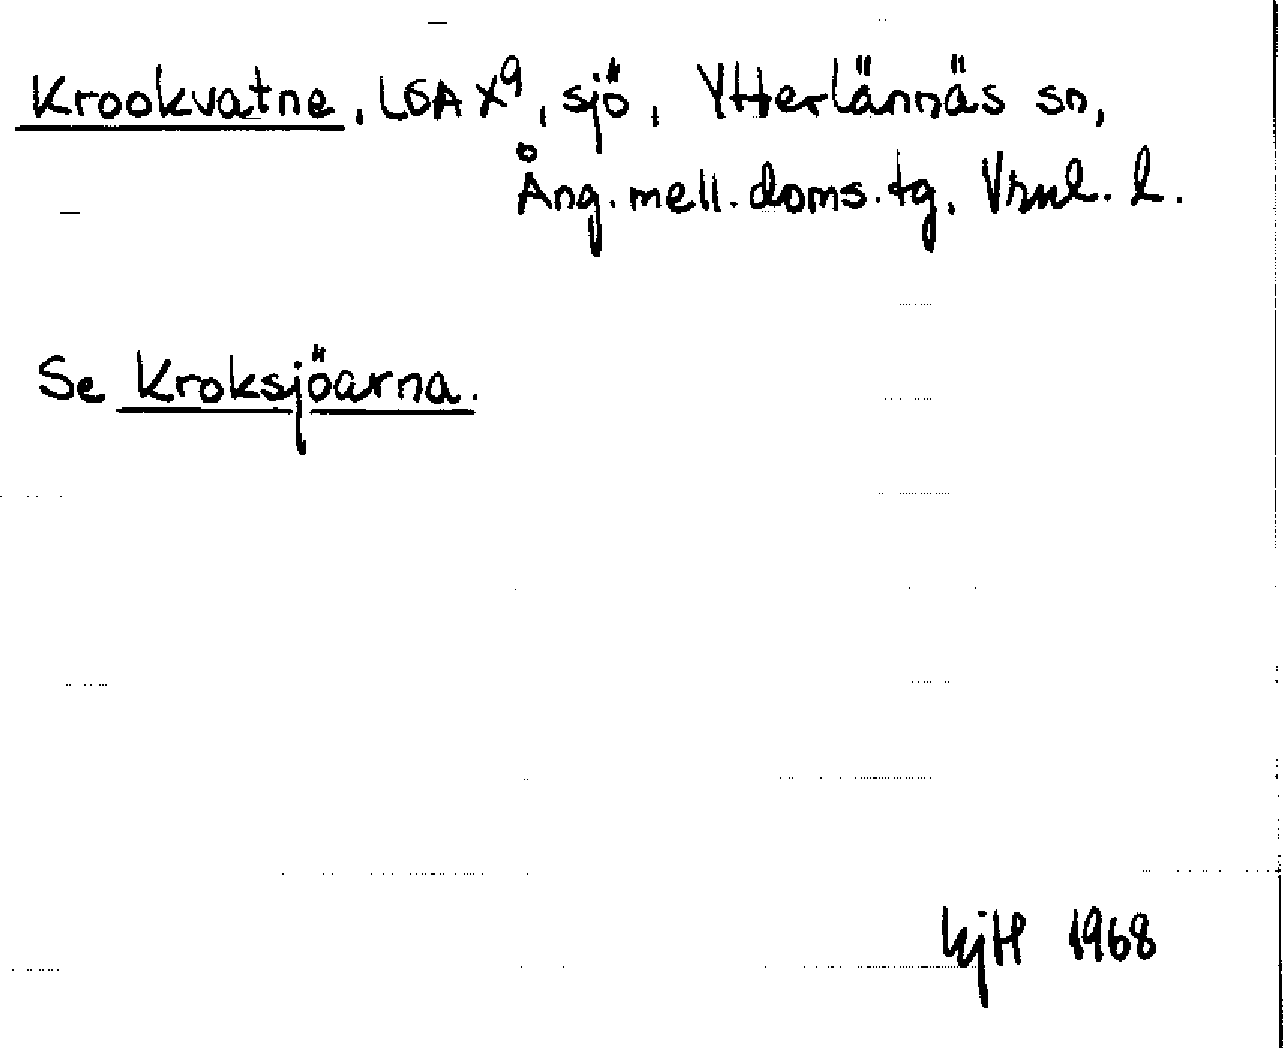 Krookvatne, LSA X9, sjö, Ytterlännäs sn,
Ång. mell. doms. tg, Vrnl. l.
Se Kroksjöarna.
1968